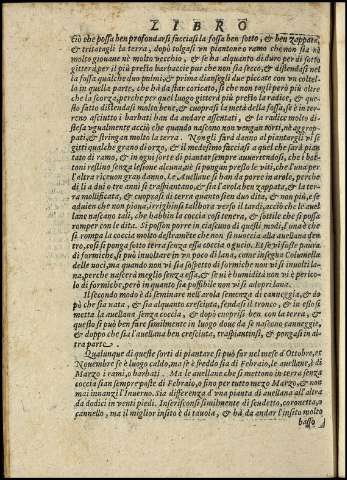 LIBRO
ciò che possa ben profondarsi facciasi la fossa ben sotto, & ben zappata,
& tritatagli la terra, dopo tolgasi vn piantone o ramo che non sia nè
molto giouane nè molto vecchio, & se ha alquanto di duro per di sotto
gitterà per il più presto barbaccie pur che non sia secco, & distendasi nel
la fossa qualche duo pni, & prima dianseli due piccate con vn coltel-
lo in quella parte, che hà da star coricato, si che non tagli però più oltre
che la scorza, perche per quel luogo gitterà più presto la radice, & que-
sto fatto distendasi molto bene, & cuoprasi la metà della fossa, se è in ter-
reno asciutto i barbati han da andare assentati, & la radice molto di-
stesa vgualmente acciò che quando nascono non vengan torti, nè aggrop-
pati, & stringan molto la terra. Non gli sarà danno al piantargli vi si
gitti qualche grano di orzo, & il medesimo facciasi a quel che sarà pian-
tato di ramo, & in ogni sorte di piantar sempre auuertendosi, che i bot-
toni restino senza lesione alcuna,
l'altra riceuon gran danno. Le Auellane si han da porre in arole, perche
di lì a dui o tre anni si traspiantano, & sia l'arola ben zappata, & la ter-
ra mollificata, & cuoprasi di terra quanto sien duo dita, & non più, & se
aduien che non pioue, irrighinsi tallhora verso il tardi, acciò che l'auel-
lane nascano tali, che habbin la coccia così tenera, & sottile che si possa
romper con le dita. Si posson porre in ciascuno di questi modi, l'vna è che
si rompa la coccia molto destramente che non si nuoccia alla auellana den
tro, così si ponga sotto terra senza essa coccia o gucio. Et se vi foste paura
di formiche, si può inuoltare in vn poco di lana, come insegna Columella
delle noci, ma quando non vi sia sospetto di formiche non vi si inuolti la-
na, perche nascerà meglio senza essa, & se vi è humidità non vi è perico-
lo di formiche, però in quanto sia possibile non vi si adopri lana.
Il secondo modo è di seminare nell'arola semenza di canneggia, & do
pò che sia nata, & sia alquanto cresciuta, fendasi il tronco, & in esso si
metta la auellana senza coccia, & dopò cuoprisi ben con la terra, &
questo si può ben fare similmente in luogo doue da se nascono canneggie,
& doppo che sia l'auellana ben cresciuta, traspiantinsi, & pongasi in al-
tra parte.
Qualunque di queste sorti di piantare si può far nel mese d'Ottobre, et
Nouembre se è luogo caldo, ma se è freddo sia di Febraio, le auellane, & di
Marzo i rami, o barbati. Ma le auellane che si mettono in terra senza
coccia sian sempre poste di Febraio, o fino per tutto mezo Marzo, & non
mai innanzi l'Inuerno. Sia differenza d'vna pianta di auellana all'altra
da dodici in venti piedi. Inseriscõnsi similmente di scudetto, coronetta, o
cannello, ma il miglior insito è di tauola, & hà da andar l'insito molto
basso